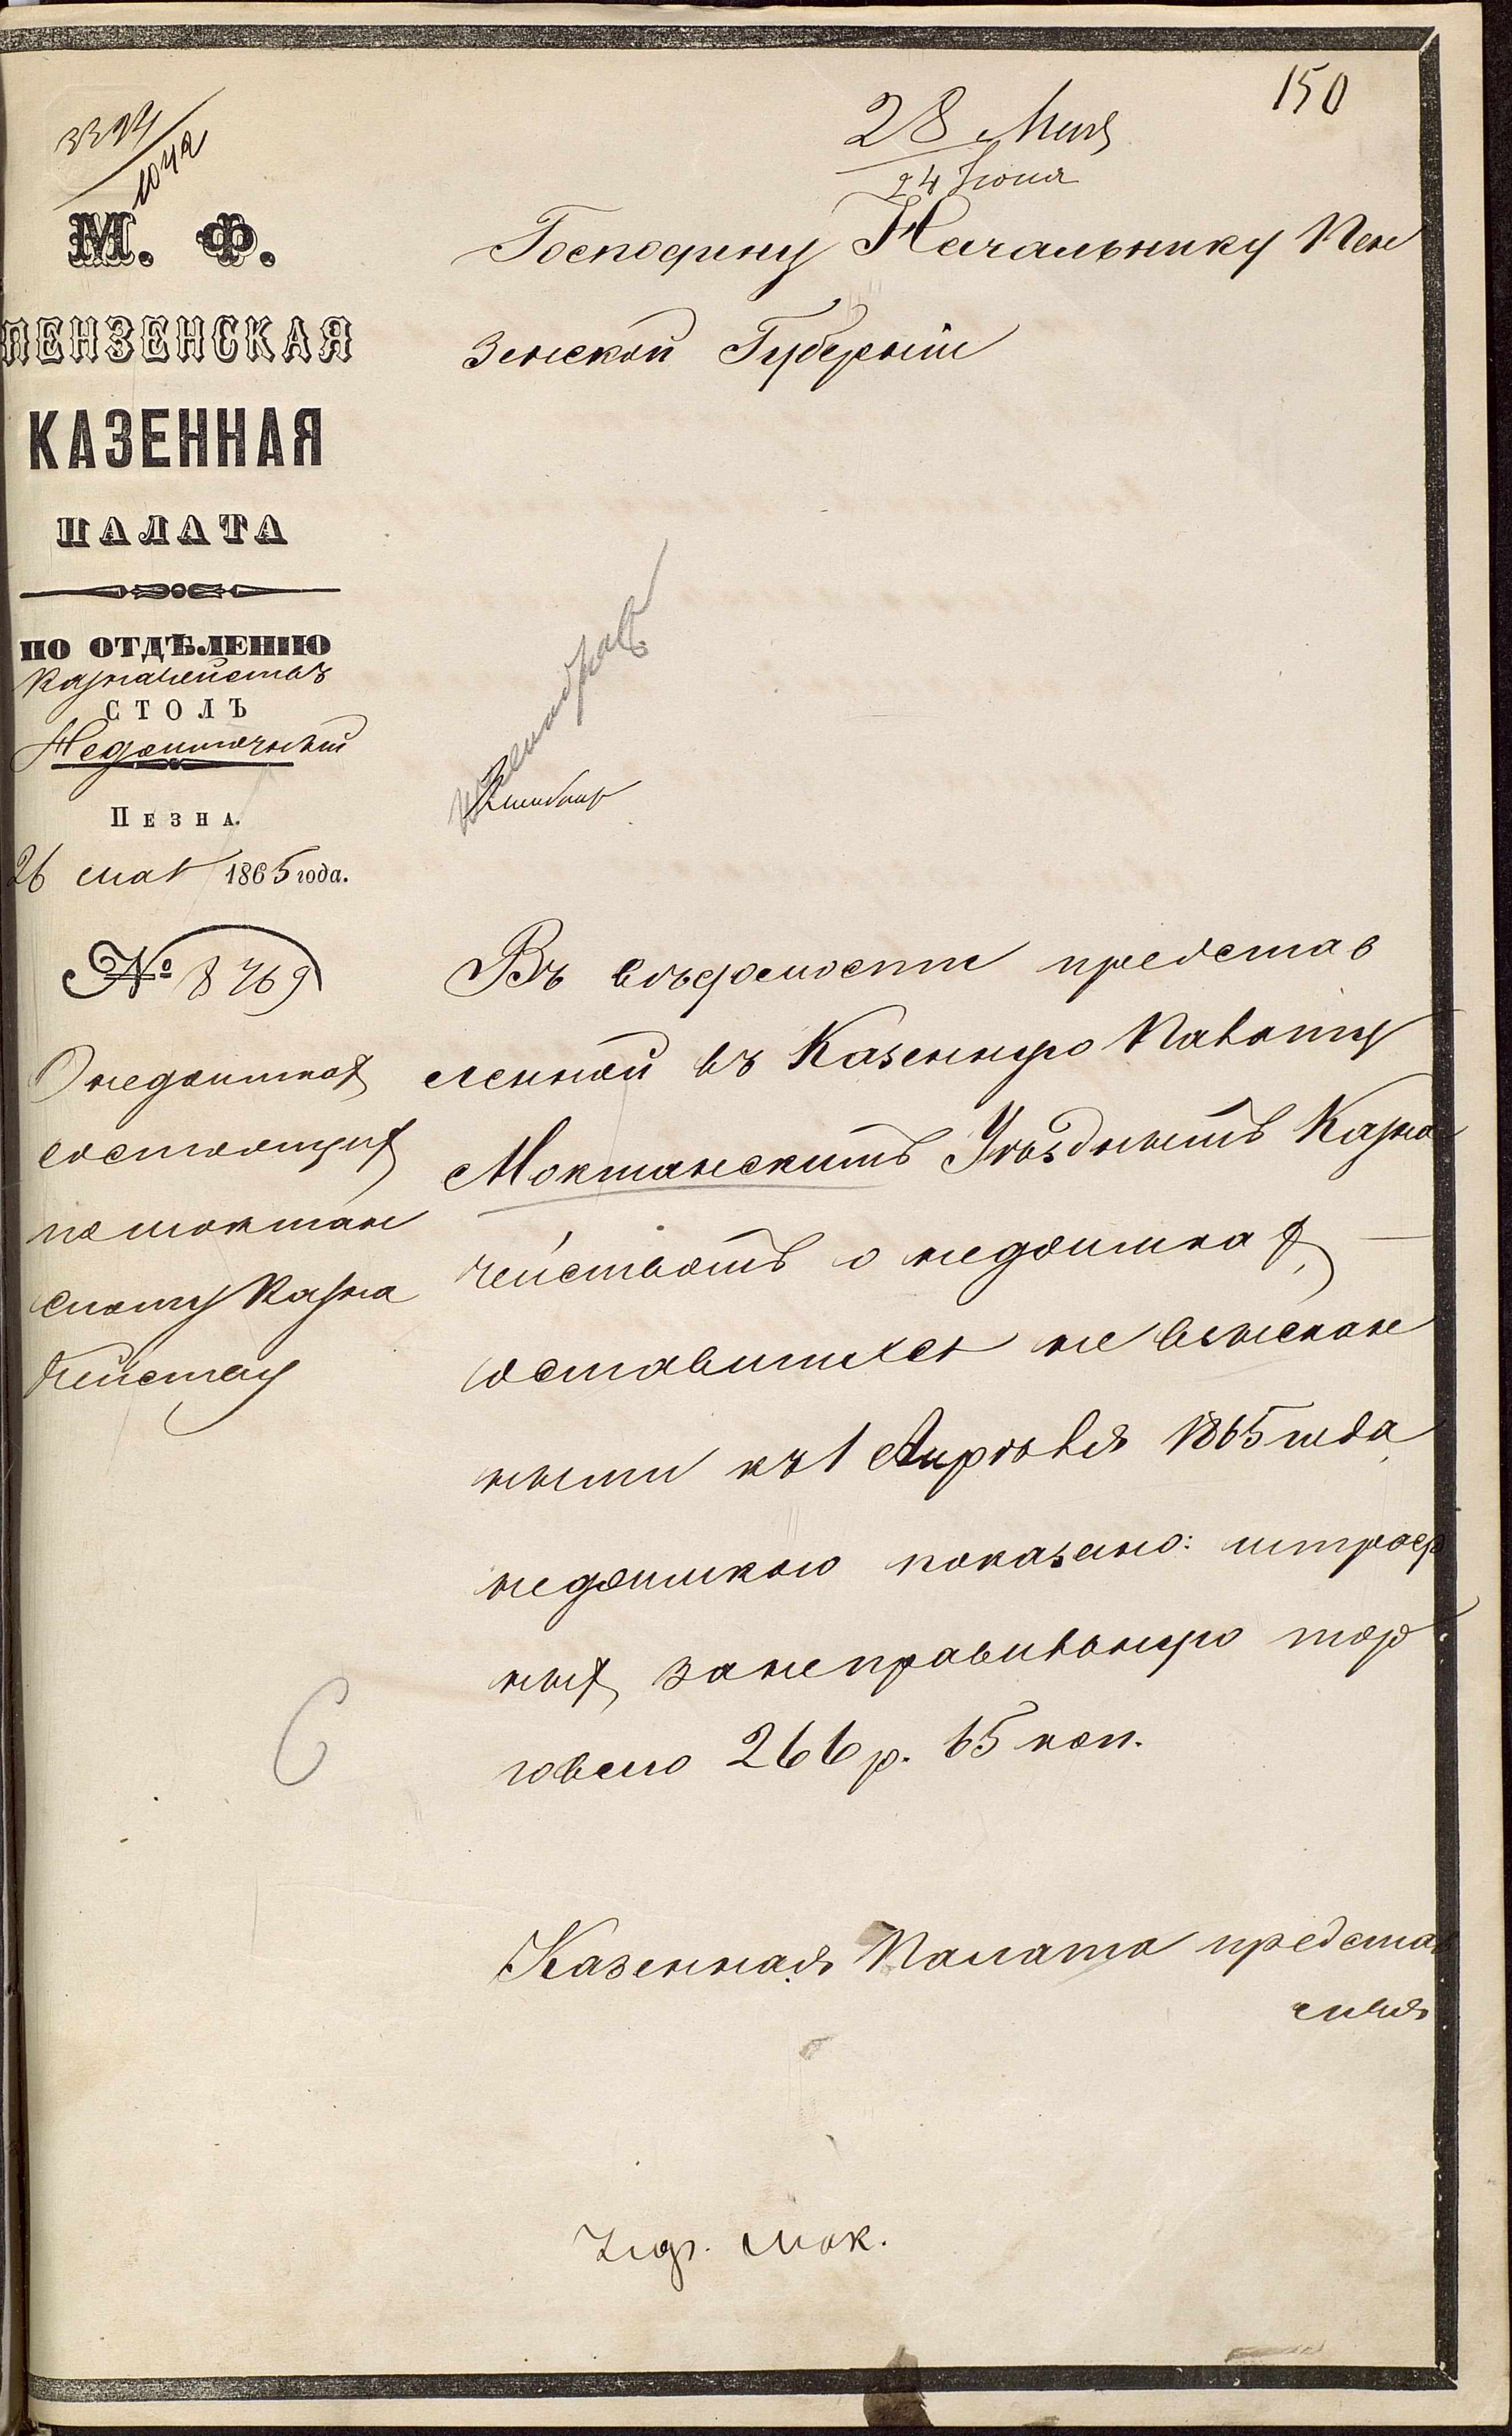 150
28 Мая
24 Iюня
М. Ф.
ПЕНЗЕНСКАЯ
КАЗЕННАЯ
ПАЛАТА
ПО ОТДѢЛЕНІЮ
Казначействъ
СТОЛЪ
Недоимочный
ПЕЗНА.
26 мая 1865 года.
№ 8769
О недоимках
состоящих
по мокшан
скому Казна
чейству
Господину Начальнику Пен
зенской Губерніи
Въ вѣдомости представ
ленной въ Казенную Палату
Мокшанскимъ Уѣзднымъ Казна
чействомъ о недоимках,
оставшихся не взыскан
ными къ 1 Апрѣля 1865 года,
недоимкою показано: штраф
ных за неправильную тор
говлю 266 р. 65 коп.
Казенная Палата представ
ляя
мок.